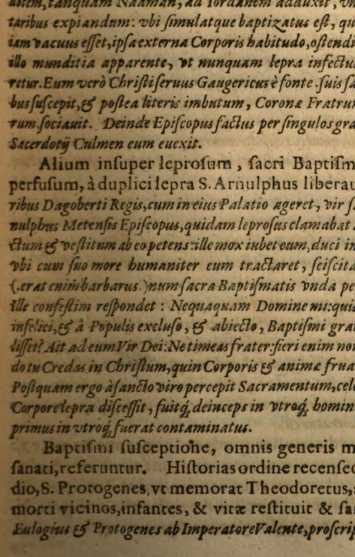 autem, tanquam Naaman, ad Iordanem adduxit,
taribus expiandum: vbi simulatque baptizatus est, qu
iam vacuus esset, ipsa externa Corporis habitudo, ostendi
illo munditia apparente, vt nunquam lepra infectu
retur. Eum verò Christi seruus Gaugericus è fonte suis sa
bus suscepit, & postea literis imbutum, Coronæ Fratrum
rum sociauit. Deinde Episcopus factus per singulos gra
Sacerdotij Culmen eum euexit.
Alium insuper leprosum, sacri Baptism
perfusum, à duplici lepra S. Arnulphus liberau
ribus Dagoberti Regis, cum in eius Palatio ageret, vir s
nulphus Metensis Episcopus, quidam leprosus clamabat
ctum & vestitum ab eo petens: ille mox iubet eum, duci in
vbi cum suo more humaniter eum tractaret, sciscita
(erat enim barbarus) num sacra Baptismatis vnda pe
ille confestim respondet: Nequaquam Domine mi: qui
infelici, & à Populis excluso, & abiecto, Baptismi grat
disset? Ait ad eum Vir Dei: Ne timeas frater: fieri enim non
do tu Credas in Christum, quin Corporis & animæ frua
Postquam ergo à sancto viro percepit Sacramentum, cele
Corpore lepra discessit, fuitq; deinceps in vtroq; homin
primus in vtroq; fuerat contaminatus.
Baptismi susceptione, omnis generis m
sanati, referuntur. Historias ordine recensed
dio, S. Protogenes, vt memorat Theodoretus,
morti vicinos, infantes, & vitæ restituit & sa
Eulogius & Protogenes ab Imperatore Valente, proscrip